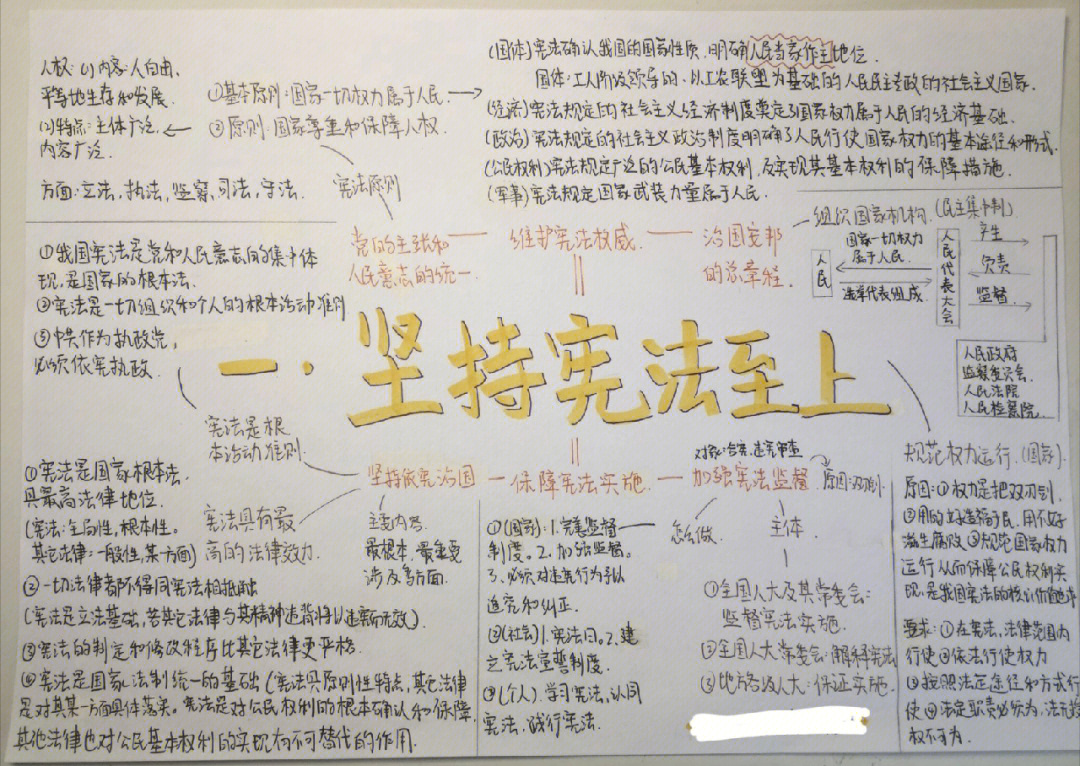 人权：(1)内容：人自由、
平等地生存和发展.
(2)特点：主体广泛，
内容广泛.
方面：立法，执法，监察，司法，守法.
①基本原则：国家一切权力属于人民.
②原则：国家尊重和保障人权
宪法原则
(国体)宪法确认我国的国家性质，明确人民当家作主地位.
国体：工人阶级领导的，以工农联盟为基础的人民民主专政的社会主义国家.
(经济)宪法规定的社会主义经济制度奠定了国家权力属于人民的经济基础.
(政治)宪法规定的社会主义政治制度明确了人民行使国家权力的基本途径和形式.
(公民权利)宪法规定广泛的公民基本权利，及实现其基本权利的保障措施.
(军事)宪法规定国家武装力量属于人民.
党的主张和
人民意志的统一
维护宪法权威
治国安邦
的总章程
组织国家机构.(民主集中制)
国家一切权力
属于人民.
人民
选举代表组成.
人民代表大会
产生
负责
监督
人民政府
监察委员会
人民法院
人民检察院
①我国宪法是党和人民意志的集中体
现，是国家的根本法.
②宪法是一切组织和个人的根本活动准则
③中共作为执政党，
必须依宪执政.
一.坚持宪法至上
宪法是根
本活动准则
坚持依宪治国
保障宪法实施
加强宪法监督
原因：双刃剑
宪法具有最
高的法律效力.
主要内容
最根本，最重要
涉及多方面.
①宪法是国家根本法.
具最高法律地位.
(宪法：全局性，根本性。
其它法律：一般性，某一方面)
②一切法律者都不得同宪法相抵触
(宪法是立法基础，若其它法律与其精神违背将以违宪而无效).
③宪法的制定和修改程序比其它法律更严格.
④宪法是国家法制统一的基础(宪法具原则性特点，其它法律
是对其某一方面具体落实。宪法是对公民权利的根本确认和保障，
其他法律也对公民基本权利的实现有不可替代的作用.
①(国家)：1.完善监督
制度。2.加强监督。
3、必须对违宪行为予以
追究和纠正.
②(社会)1.宪法日。2.建
立宪法宣誓制度.
③(个人).学习宪法，认同
宪法，践行宪法.
怎么做
主体
①全国人大及其常委会：
监督宪法实施.
②全国人大常委会：解释宪法
③地方各级人大：保证实施.
规范权力运行.(国家)
原因：①权力是把双刃剑
②用的好造福于民，用不好
滋生腐败 ③规范国家权力
运行从而保障公民权利实
现，是我国宪法的核心价值追求
要求：①在宪法、法律范围内
行使②依法行使权力
③按照法定途径和方式行
使④法定职责必须为，法无授
权不可为.